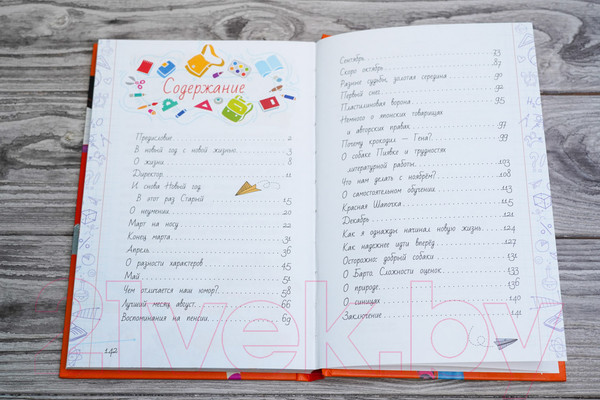 Содержание
Предисловие 2
В новый год с новой жизнью 3
О жизни 8
Директор 11
И снова Новый год.
В этот раз Старый 15
О неумении 20
Март на носу 22
Конец марта 31
Апрель 36
О разности характеров 45
Май 51
Чем отличается наш юмор? 58
Лучший месяц август 66
Воспоминания на пенсии 69
142
Сентябрь 73
Скоро октябрь 87
Разные судьбы, золотая середина 90
Первый снег 92
Пластилиновая ворона 95
Немного о японских товарищах
и авторских правах 97
Почему крокодил — Гена? 99
О собаке Пиявке и трудностях
литературной работы 103
Что нам делать с ноябрём? 108
О самостоятельном обучении 113
Красная Шапочка 115
Декабрь 121
Как я однажды начинал новую жизнь 124
Как надёжнее идти вперёд 127
Осторожно: добрый собака! 131
О Барто. Сложности оценок 133
О природе 136
О синицах 140
Заключение 141
21vek.by